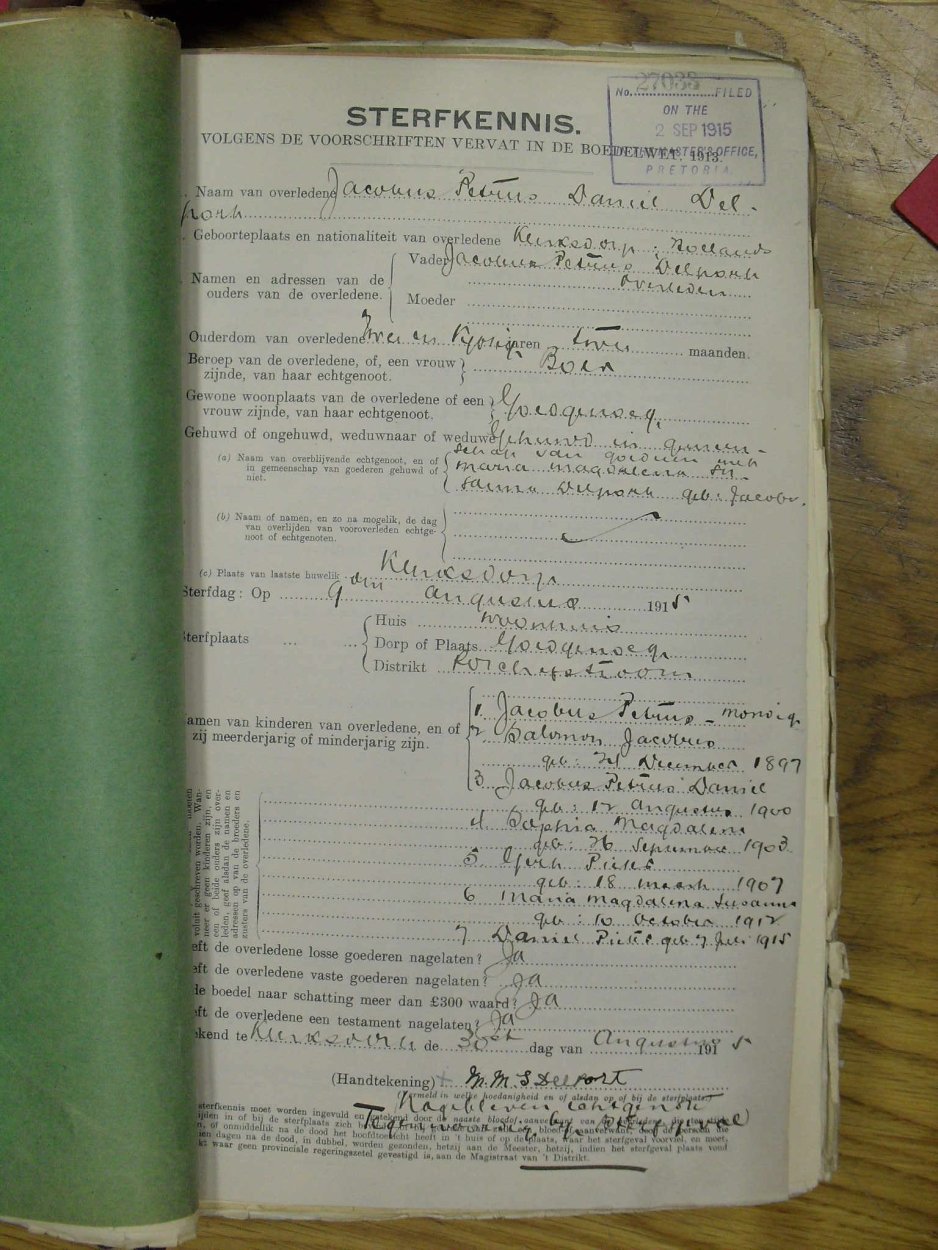 No. 27033 FILED
ON THE
2 SEP 1915
MASTER'S OFFICE,
PRETORIA.
STERFKENNIS.
VOLGENS DE VOORSCHRIFTEN VERVAT IN DE BOEDELWET. 1913.
Naam van overledene Jacobus Petrus Daniel Del-
port
Geboorteplaats en nationaliteit van overledene Klerksdorp : Hollands
Namen en adressen van de ouders van de overledene.
Vader Jacobus Petrus Delport
overleden
Moeder
Ouderdom van overledene Twee en Vyftig jaren twee maanden.
Beroep van de overledene, of, een vrouw zijnde, van haar echtgenoot. Boer
Gewone woonplaats van de overledene of een vrouw zijnde, van haar echtgenoot. Goedgenoeg
Gehuwd of ongehuwd, weduwnaar of weduwe Gehuwd in gemeen-
(a) Naam van overblijvende echtgenoot, en of in gemeenschap van goederen gehuwd of niet.
schap van goederen met
Maria Magdalena Su-
sanna Delport geb: Jacobs.
(b) Naam of namen, en zo na mogelik, de dag van overlijden van vooroverleden echtgenoot of echtgenoten.
(c) Plaats van laatste huwelik Klerksdorp
Sterfdag: Op 9 den Augustus 1915
Sterfplaats ... ...
Huis woonhuis
Dorp of Plaats Goedgenoeg
Distrikt Potchefstroom
amen van kinderen van overledene, en of
zij meerderjarig of minderjarig zijn.
1 Jacobus Petrus - mondig
2 Salomon Jacobus
geb: December 1897
3 Jacobus Petrus Daniel
geb: 12 Augustus 1900
4 Sophia Magdalena
geb: 26 September 1903
5 Gert Pieter
geb: 18 Maart 1907
6 Maria Magdalena Susanna
geb: 10 October 1912
7 Daniel Pieter geb 7 Juli 1915
moeten
voluit geschreven worden. Wan-
neer er geen kinderen zijn, en
een of beide ouders zijn over-
leden, geef alsdan de namen en
adressen op van de broeders en
zusters van de overledene.
eft de overledene losse goederen nagelaten? Ja
eft de overledene vaste goederen nagelaten? Ja
de boedel naar schatting meer dan £300 waard? Ja
eft de overledene een testament nagelaten? Ja
ekend te Klerksdorp de 30st dag van Augustus 1915
(Handtekening) M. M. S Delport
Vermeld in welke hoedanigheid en of alsdan op of bij de sterfplaats
Nagebleven echtgenote
Tegenwoordig by sterfgeval
sterfkennis moet worden ingevuld en getekend door de naaste bloed- of aanverwant van de overledene, die ten tijde
n, of onmiddellik na de dood het hoofdtoezicht heeft in 't huis of op de plaats, waar het sterfgeval voorviel, en moet,
en dagen na de dood, in dubbel, worden gezonden, hetzij aan de Meester, hetzij, indien het sterfgeval plaats vond
kt waar geen provinciale regeringszetel gevestigd is, aan de Magistraat van 't Distrikt.